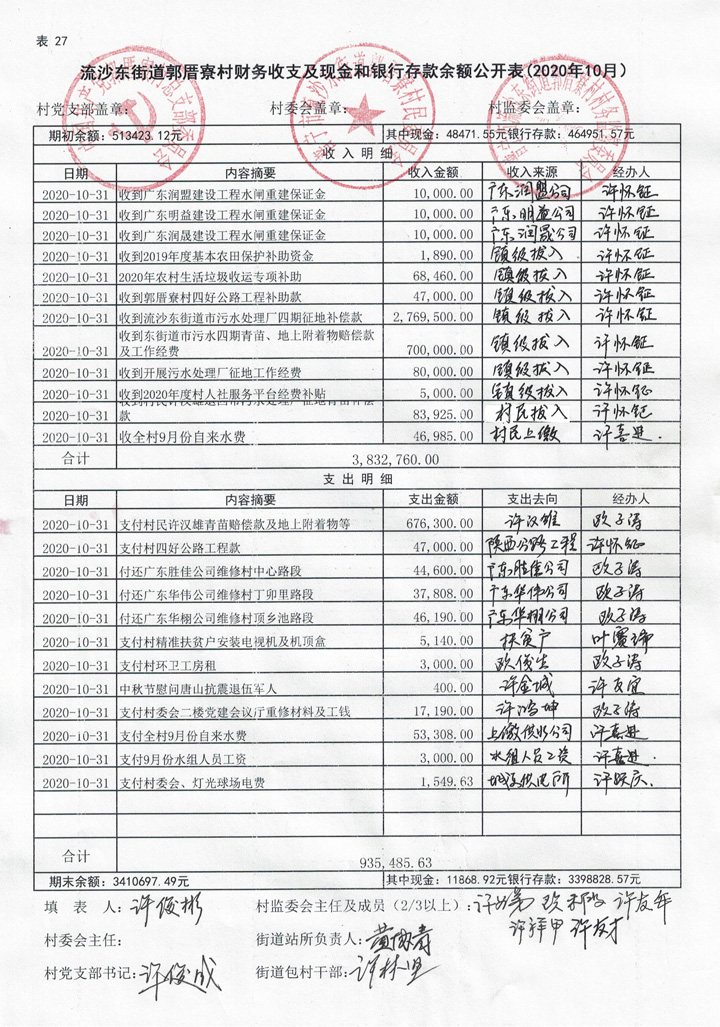 表 27
流沙东街道郭厝寮村财务收支及现金和银行存款余额公开表(2020年10月)
村党支部盖章: 村委会盖章: 村监委会盖章:
期初余额: 513423.12元 其中现金: 48471.55元银行存款: 464951.57元
收 入 明 细
日期 内容摘要 收入金额 收入来源 经办人
2020-10-31 收到广东润盟建设工程水闸重建保证金 10,000.00 广东润盟公司 许怀钲
2020-10-31 收到广东明益建设工程水闸重建保证金 10,000.00 广东明益公司 许怀钲
2020-10-31 收到广东润晟建设工程水闸重建保证金 10,000.00 广东润晟公司 许怀钲
2020-10-31 收到2019年度基本农田保护补助资金 1,890.00 镇级拨入 许怀钲
2020-10-31 2020年农村生活垃圾收运专项补助 68,460.00 镇级拨入 许怀钲
2020-10-31 收到郭厝寮村四好公路工程补助款 47,000.00 镇级拨入 许怀钲
2020-10-31 收到流沙东街道市污水处理厂四期征地补偿款 2,769,500.00 镇级拨入 许怀钲
2020-10-31 收到东街道市污水四期青苗、地上附着物赔偿款
及工作经费 700,000.00 镇级拨入 许怀钲
2020-10-31 收到开展污水处理厂征地工作经费 80,000.00 镇级拨入 许怀钲
2020-10-31 收到2020年度村人社服务平台经费补贴 5,000.00 镇级拨入 许怀钲
2020-10-31 款 83,925.00 村民拨入 许怀钲
2020-10-31 收全村9月份自来水费 46,985.00 村民上缴 许喜进.
合计 3,832,760.00
支 出 明 细
日期 内容摘要 支出金额 支出去向 经办人
2020-10-31 支付村民许汉雄青苗赔偿款及地上附着物等 676,300.00 许汉雄 欧子涛
2020-10-31 支付村四好公路工程款 47,000.00 陕西公路工程 许怀钲
2020-10-31 付还广东胜佳公司维修村中心路段 44,600.00 广东胜佳公司 欧子涛
2020-10-31 付还广东华伟公司维修村丁卯里路段 37,808.00 广东华伟公司 欧子涛
2020-10-31 付还广东华栩公司维修村顶乡池路段 46,190.00 广东华栩公司 欧子涛
2020-10-31 支付村精准扶贫户安装电视机及机顶盒 5,140.00 扶贫户
2020-10-31 支付村环卫工房租 3,000.00 欧子涛
2020-10-31 中秋节慰问唐山抗震退伍军人 400.00 许金城 许友宜
2020-10-31 支付村委会二楼党建会议厅重修材料及工钱 17,190.00 欧子涛
2020-10-31 支付全村9月份自来水费 53,308.00 上缴供水公司 许喜进
2020-10-31 支付9月份水组人员工资 3,000.00 水组人员工资 许喜进.
2020-10-31 支付村委会、灯光球场电费 1,549.63 许跃庆.
合计 935,485.63
期末余额: 3410697.49元 其中现金: 11868.92元银行存款: 3398828.57元
填 表 人: 许俊彬 村监委会主任及成员(2/3以上): 许友年
许友才
村委会主任: 街道站所负责人:
村党支部书记: 许俊成 街道包村干部: 许林坚